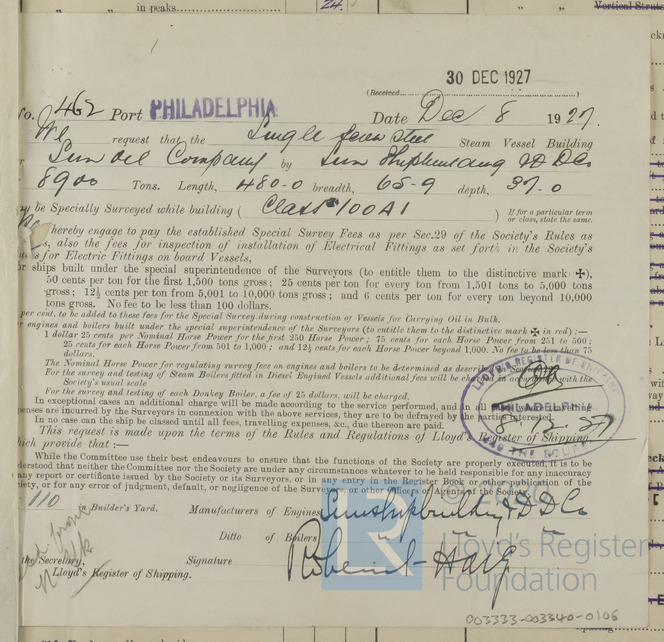 in peaks
24.
Vertical Struts
(Received
30 DEC 1927
No. 462 Port PHILADELPHIA Date Dec 8 1927.
We request that the Single Screw Steel Steam Vessel Building
Sun Oil Company by Sun Shipbuilding & D D Co
8900 Tons. Length, 480-0 breadth, 65-9 depth, 37-0
be Specially Surveyed while building ( Class 100A1 ) If for a particular term
or class, state the same.
hereby engage to pay the established Special Survey Fees as per Sec.29 of the Society's Rules as
also the fees for inspection of installation of Electrical Fittings as set forth in the Society's
for Electric Fittings on board Vessels,
or ships built under the special superintendence of the Surveyors (to entitle them to the distinctive mark ✠),
50 cents per ton for the first 1,500 tons gross; 25 cents per ton for every ton from 1,501 to 5,000 tons
gross; 12½ cents per ton from 5,001 to 10,000 tons gross; and 6 cents per ton for every ton beyond 10,000
tons gross. No fee to be less than 100 dollars.
per cent. to be added to these fees for the Special Survey during construction of Vessels for Carrying Oil in Bulk.
engines and boilers built under the special superintendence of the Surveyors (to entitle them to the distinctive mark ✠ in red) :—
1 dollar 25 cents per Nominal Horse Power for the first 250 Horse Power; 75 cents for each Horse Power from 251 to 500;
25 cents for each Horse Power from 501 to 1,000; and 12½ cents for each Horse Power beyond 1,000. No fee to be less than 75
dollars.
The Nominal Horse Power for regulating survey fees on engines and boilers to be determined as described in Society's
For the survey and testing of Steam Boilers fitted in Diesel Engined Vessels additional fees will be charged in accordance with the
Society's usual scale
For the survey and testing of each Donkey Boiler, a fee of 25 dollars, will be charged.
In exceptional cases an additional charge will be made according to the service performed, and in all
expenses are incurred by the Surveyors in connection with the above services, they are to be defrayed by the parties interested.
In no case can the ship be classed until all fees, travelling expenses, &c., due thereon are paid.
This request is made upon the terms of the Rules and Regulations of Lloyd's Register of Shipping,
which provide that :—
While the Committee use their best endeavours to ensure that the functions of the Society are properly executed, it is to be
understood that neither the Committee nor the Society are under any circumstances whatever to be held responsible for any inaccuracy
any report or certificate issued by the Society or its Surveyors, or in any entry in the Register Book or other publication of the
Society, or for any error of judgment, default, or negligence of the Surveyors or other Officers or Agents of the Society.
PHILADELPHIA
8-12-27
110 Builder's Yard. Manufacturers of Engines Sun Shipbuilding & D D Co
Ditto of Boilers
the Secretary, Signature Robert Haig
Lloyd's Register of Shipping.
Lloyd's Register
Foundation
003333-003340-0106